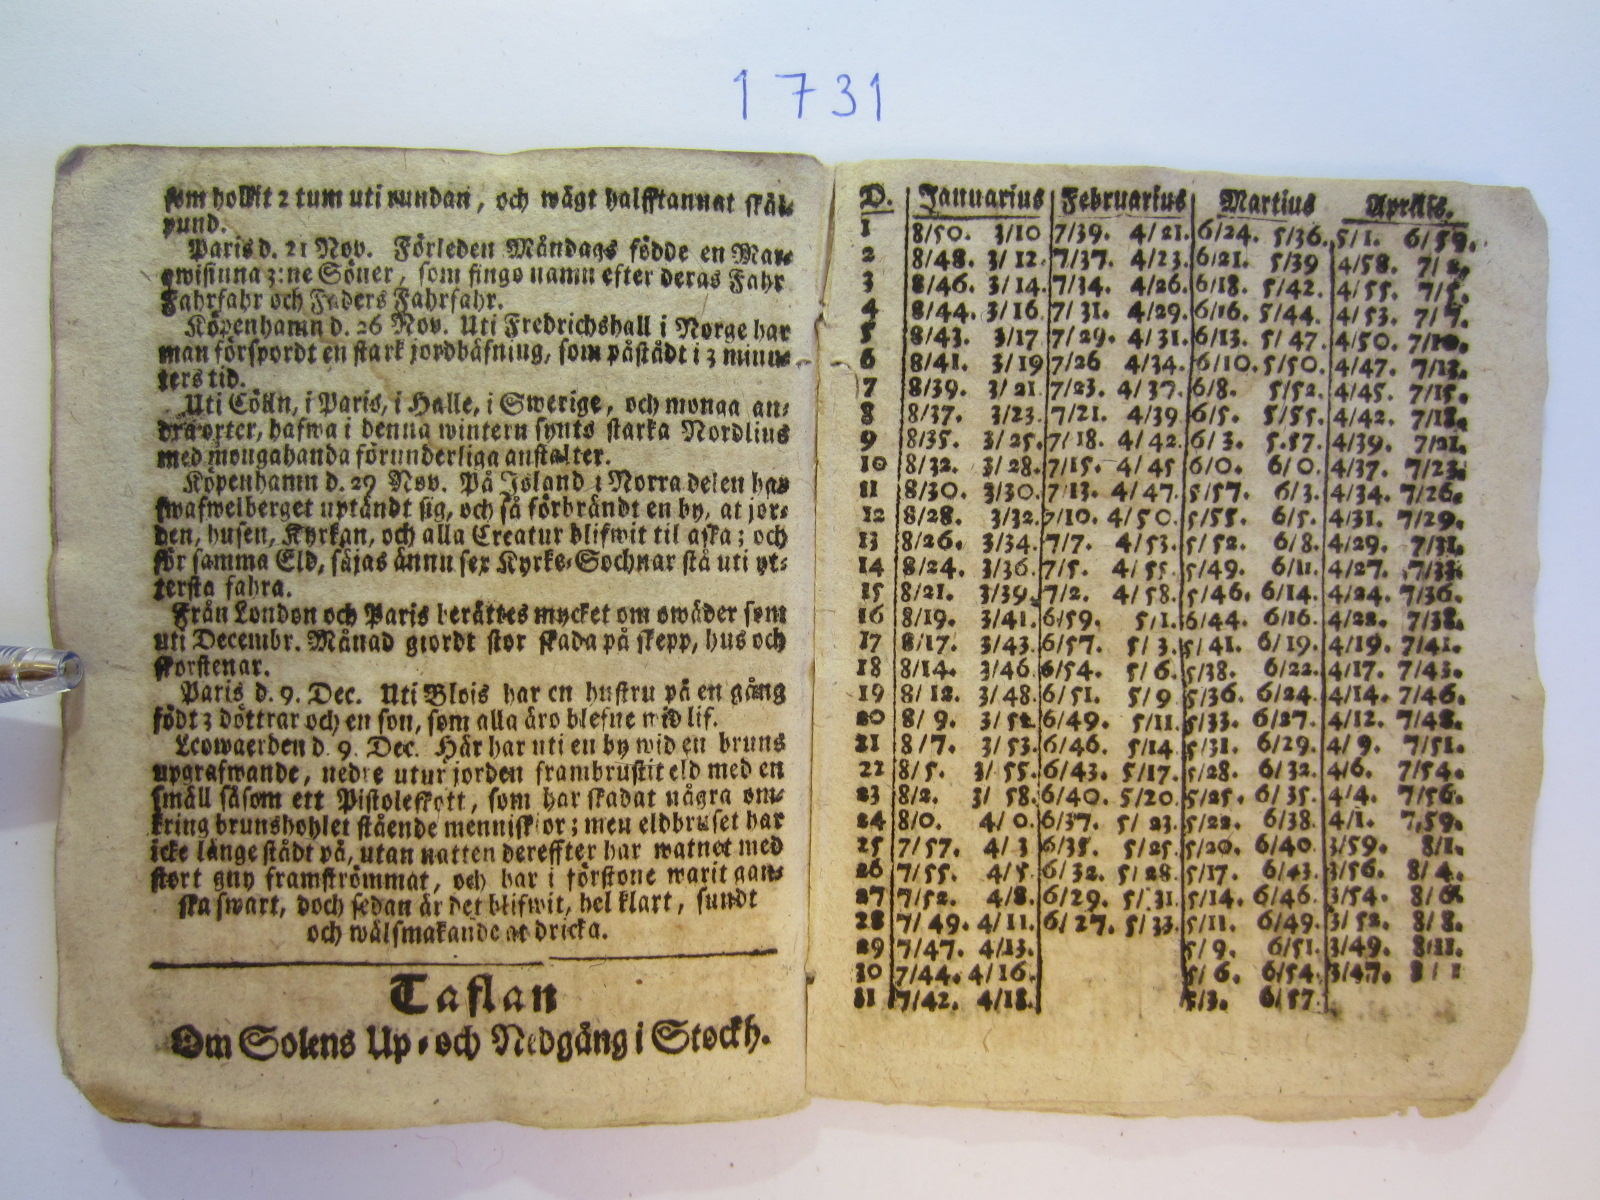 1731
som hollit 2 tum uti rundan, och wägt halfftannat skål-
pund.
Paris d. 21 Nov. Förleden Måndags födde en Mar-
qwisinna 3:ne Söner, som fingo namn efter deras Fahr
Fahrfahr och Faders Fahrfahr.
Köpenhamn d. 26 Nov. Uti Fredrichshall i Norge har
man förspordt en stark jordbäfning, som påstådt i 3 minu-
ters tid.
Uti Cölln, i Paris, i Halle, i Swerige, och monga an-
dra orter, hafwa i denna wintern synts starka Nordlius
med mongahanda förunderliga anstalter.
Köpenhamn d. 29 Nov. På Island i Norra delen har
swafwelberget uptändt sig, och så förbrändt en by, at jor-
den, husen, Kyrkan, och alla Creatur blifwit til aska; och
för samma Eld, säjas ännu sex Kyrke-Sochnar stå uti yt-
tersta fahra.
Från London och Paris berättes mycket om owäder som
uti Decembr. Månad giordt stor skada på skepp, hus och
skorstenar.
Paris d. 9. Dec. Uti Blois har en hustru på en gång
födt 3 döttrar och en son, som alla äro blefne wid lif.
Leowaerden d. 9. Dec. Här har uti en by wid en bruns
upgrafwande, nedre utur jorden frambrustit eld med en
smäll såsom ett Pistoleskott, som har skadat några om-
kring brunshohlet stående menniskior; men eldbruset har
icke länge städt på, utan natten dereffter har watnet med
stort gny framströmmat, och har i förstone warit gan-
ska swart, doch sedan är det blifwit, hel klart, sundt
och wälsmakande at dricka.
Taflan
Om Solens Up- och Nedgång i Stockh.
D. Januarius Februarius Martius Aprilis.
1 8/50. 3/10 7/39. 4/21. 6/24. 5/36. 5/1. 6/59.
2 8/48. 3/12. 7/37. 4/23. 6/21. 5/39 4/58. 7/2.
3 8/46. 3/14. 7/34. 4/26. 6/18. 5/42. 4/55. 7/5.
4 8/44. 3/16. 7/31. 4/29. 6/16. 5/44. 4/53. 7/7.
5 8/43. 3/17 7/29. 4/31. 6/13. 5/47. 4/50. 7/10.
6 8/41. 3/19 7/26 4/34. 6/10. 5/50. 4/47. 7/13.
7 8/39. 3/21 7/23. 4/37. 6/8. 5/52. 4/45. 7/15.
8 8/37. 3/23. 7/21. 4/39. 6/5. 5/55. 4/42. 7/18.
9 8/35. 3/25. 7/18. 4/42. 6/3. 5.57. 4/39. 7/21.
10 8/32. 3/28. 7/15. 4/45 6/0. 6/0. 4/37. 7/23.
11 8/30. 3/30. 7/13. 4/47. 5/57. 6/3. 4/34. 7/26.
12 8/28. 3/32. 7/10. 4/50. 5/55. 6/5. 4/31. 7/29.
13 8/26. 3/34. 7/7. 4/53. 5/52. 6/8. 4/29. 7/31.
14 8/24. 3/36. 7/5. 4/55. 5/49. 6/11. 4/27. 7/33.
15 8/21. 3/39. 7/2. 4/58. 5/46. 6/14. 4/24. 7/36.
16 8/19. 3/41. 6/59. 5/1. 6/44. 6/16. 4/22. 7/38.
17 8/17. 3/43. 6/57. 5/3. 5/41. 6/19. 4/19. 7/41.
18 8/14. 3/46 6/54. 5/6. 5/38. 6/22. 4/17. 7/43.
19 8/12. 3/48. 6/51. 5/9 5/36. 6/24. 4/14. 7/46.
20 8/9. 3/52. 6/49. 5/11. 5/33. 6/27. 4/12. 7/48.
21 8/7. 3/53. 6/46. 5/14 5/31. 6/29. 4/9. 7/51.
22 8/5. 3/55. 6/43. 5/17. 5/28. 6/32. 4/6. 7/54.
23 8/2. 3/58. 6/40. 5/20. 5/25. 6/35. 4/4. 7/56.
24 8/0. 4/0. 6/37. 5/23. 5/22. 6/38. 4/1. 7,59.
25 7/57. 4/3 6/35. 5/25. 5/20. 6/40. 3/59. 8/1.
26 7/55. 4/5. 6/32. 5/28. 5/17. 6/43. 3/56. 8/4.
27 7/52. 4/8. 6/29. 5/31. 5/14. 6/46. 3/54. 8/6.
28 7/49. 4/11. 6/27. 5/33. 5/11. 6/49. 3/52. 8/8.
29 7/47. 4/13. 5/9. 6/51. 3/49. 8/11.
30 7/44. 4/16. 5/6. 6/54. 3/47. 8/1
31 7/42. 4/18. 5/3. 6/57.